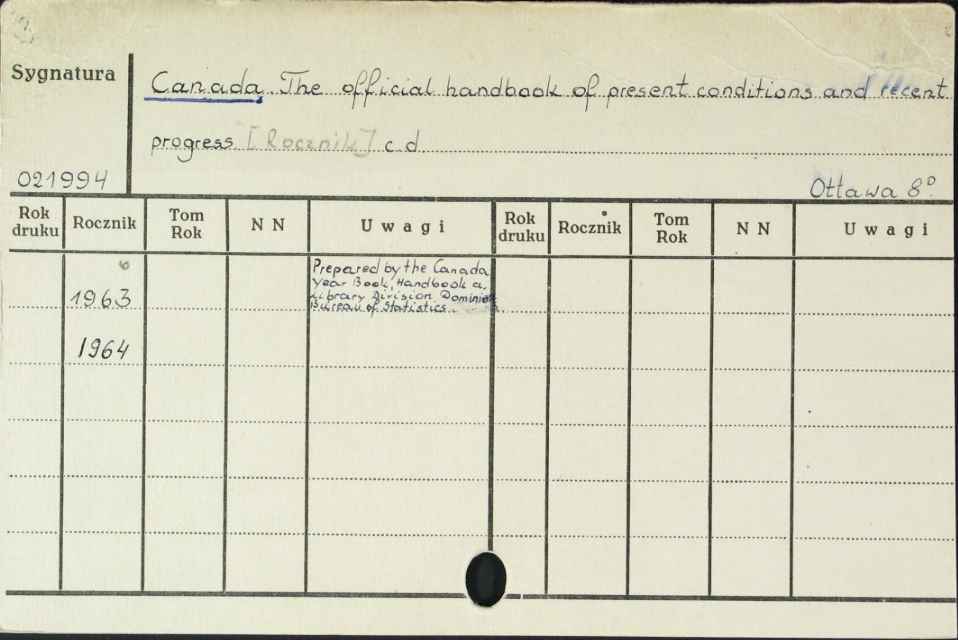 Sygnatura
Canada. The official handbook of present conditions and recent
progress [Rocznik] c d
021994
Ottawa 8°
Rok druku Rocznik Tom Rok N N Uwagi Rok druku Rocznik Tom Rok N N Uwagi
1963
Prepared by the Canada
Year Book, Handbook a.
Library Division Dominion
Bureau of Statistics.
1964